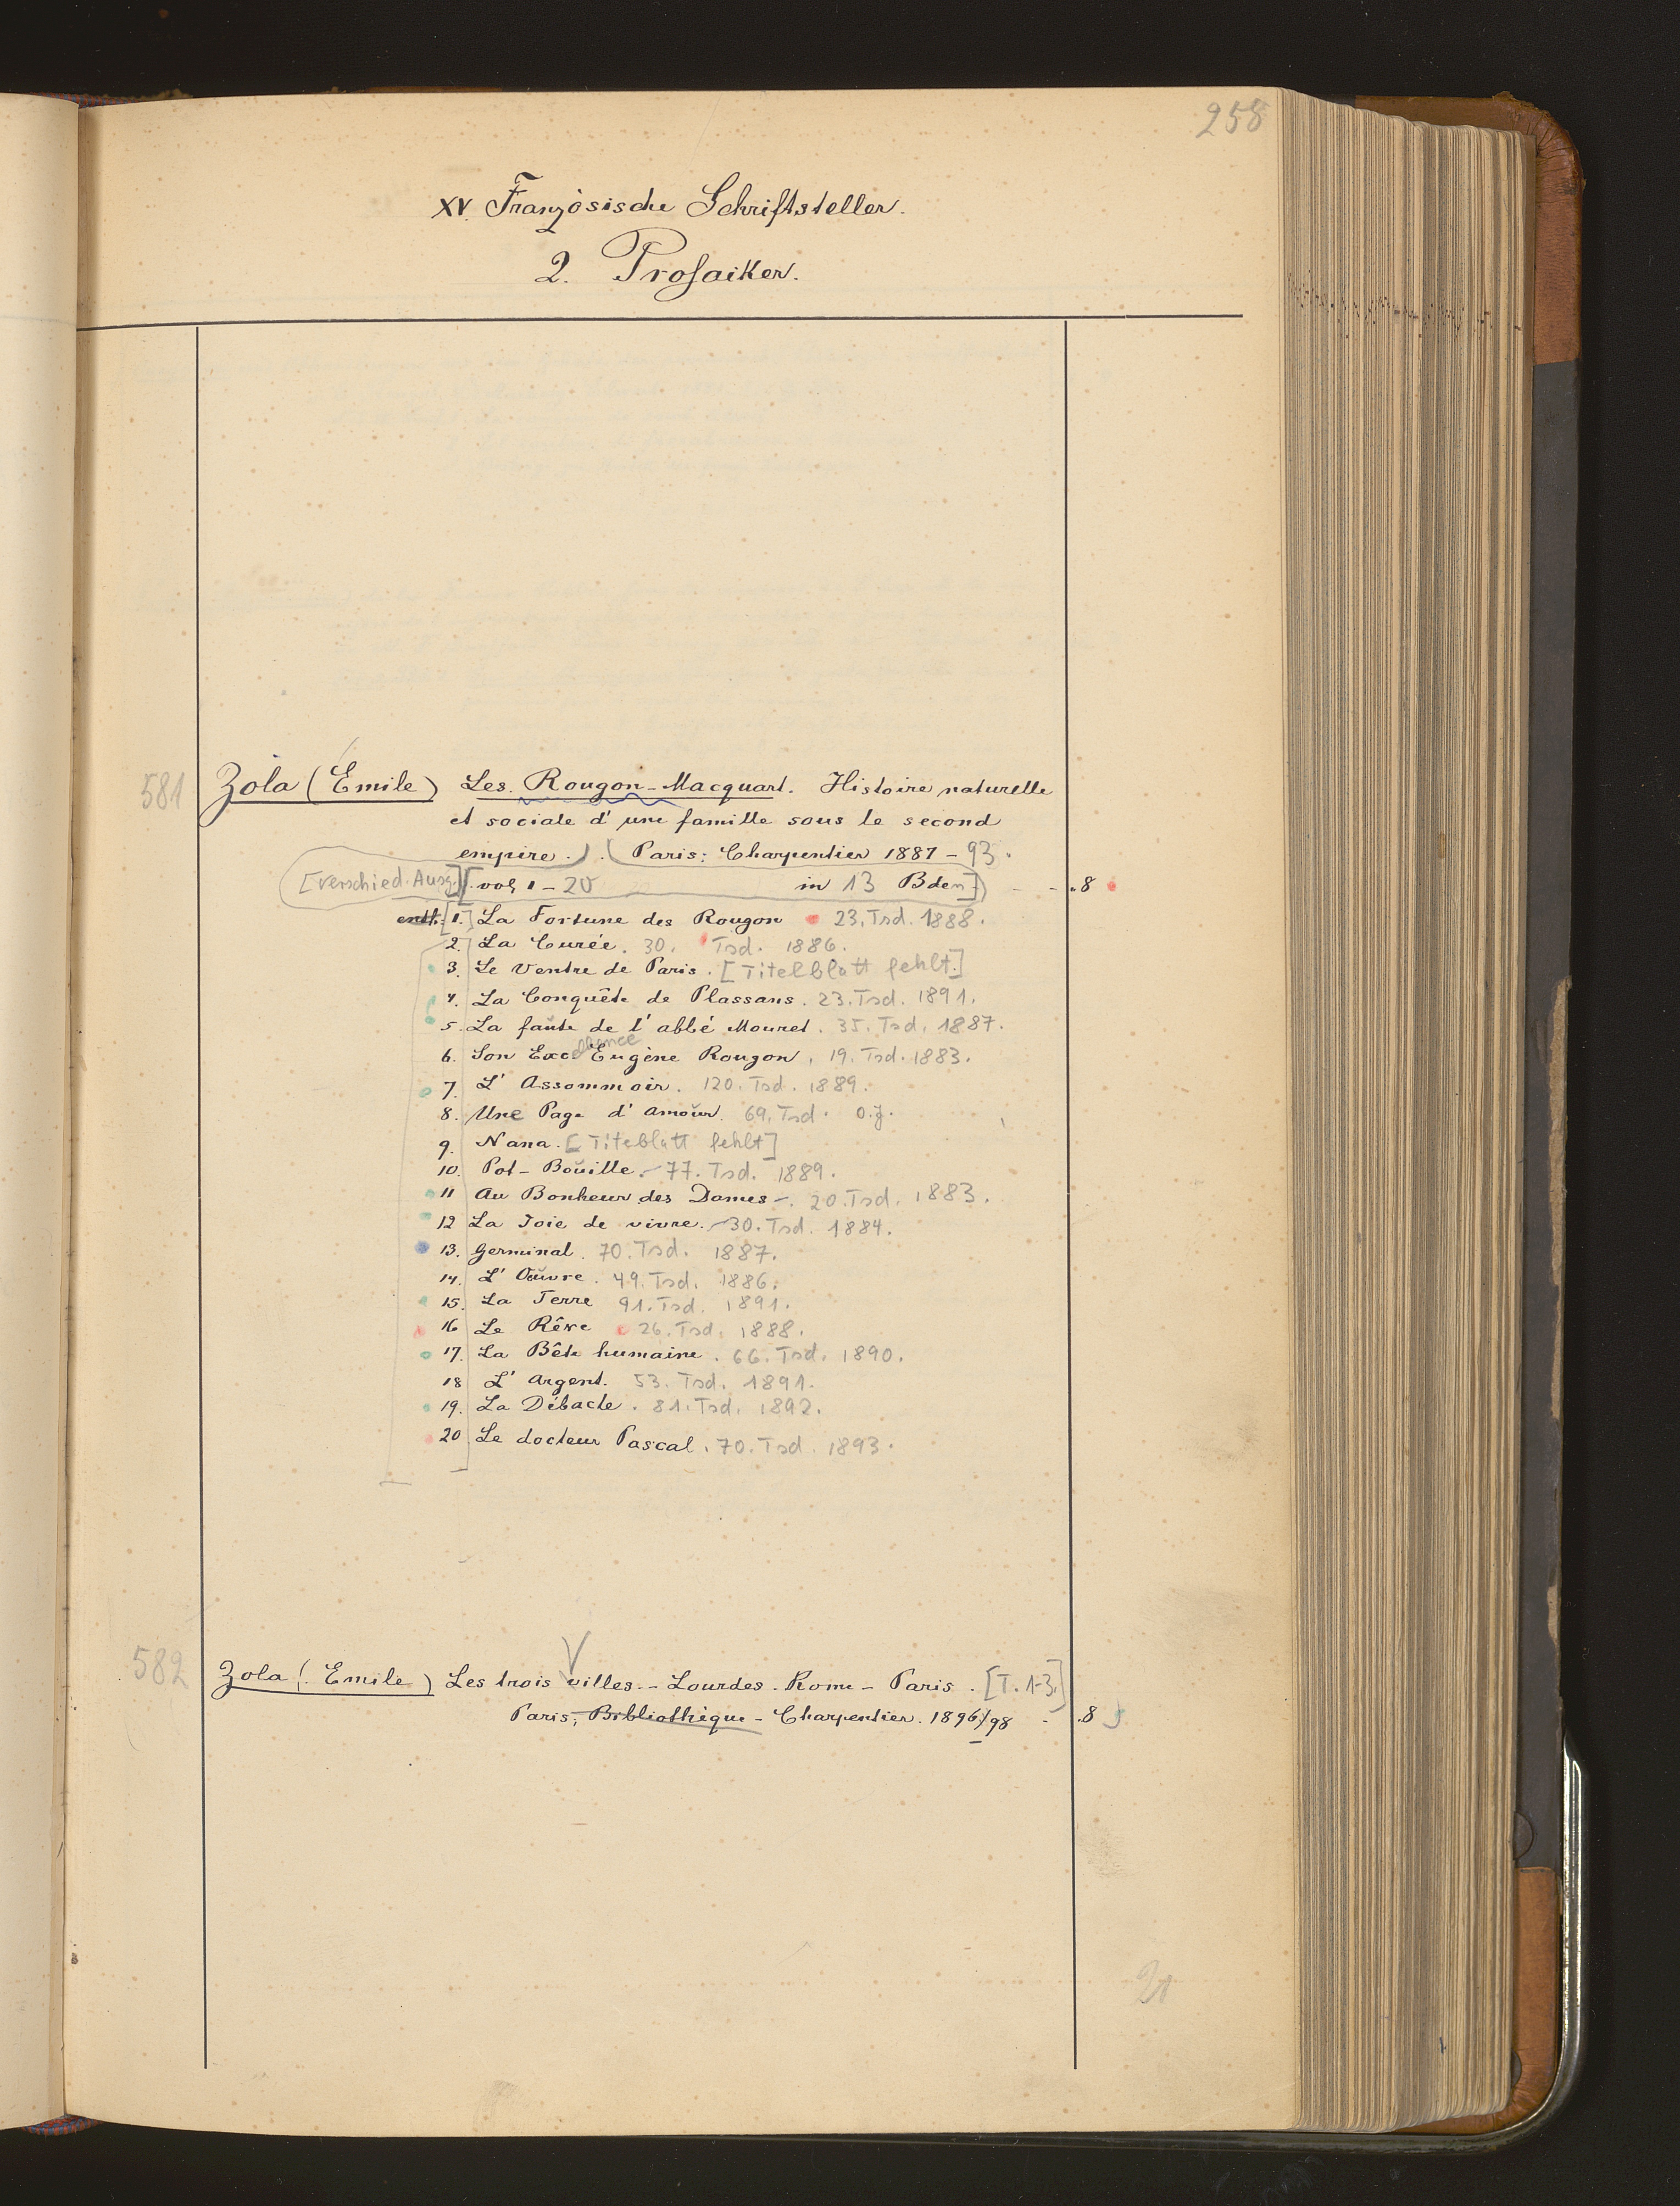 258
XV. Französische Schriftsteller.
2. Prosaiker.
581 Zola (Emile) Les Rougon-Macquart. Histoire naturelle
et sociale d'une famille sous le second
empire.) . (Paris: Charpentier 1887 - 93.
[Verschied. Ausg.] [vol 1 - 20 in 13 Bden]) - - .8
enth: [1.] La Fortune des Rougon 23. Tsd. 1888.
2. La Curée. 30. Tsd. 1886.
3. Le Ventre de Paris. [Titelblatt fehlt.]
4. La Conquête de Plassans. 23. Tsd. 1891.
5. La faute de l'abbé Mouret. 35. Tsd. 1887.
6. Son Excellence Eugène Rougon. 19. Tsd. 1883.
7. L'Assommoir. 120. Tsd. 1889.
8. Une Page d'amour. 69. Tsd. o.J.
9. Nana. [Titeblatt fehlt]
10. Pot-Bouille. - 77. Tsd. 1889.
11 Au Bonheur des Dames -. 20. Tsd. 1883.
12 La Joie de vivre. - 30. Tsd. 1884.
13. Germinal. 70. Tsd. 1887.
14. L'Oeuvre. 49. Tsd. 1886.
15. La Terre 91. Tsd. 1891.
16 Le Rêve 26. Tsd. 1888.
17. La Bête humaine. 66. Tsd. 1890.
18 L'argent. 53. Tsd. 1891.
19. La Débacle. 81. Tsd. 1892.
20 Le docteur Pascal. 70. Tsd. 1893.
582 Zola (Emile) Les trois villes. - Lourdes. Rome - Paris. [T. 1-3.]
Paris, Bibliothèque - Charpentier. 1896/98 - .8